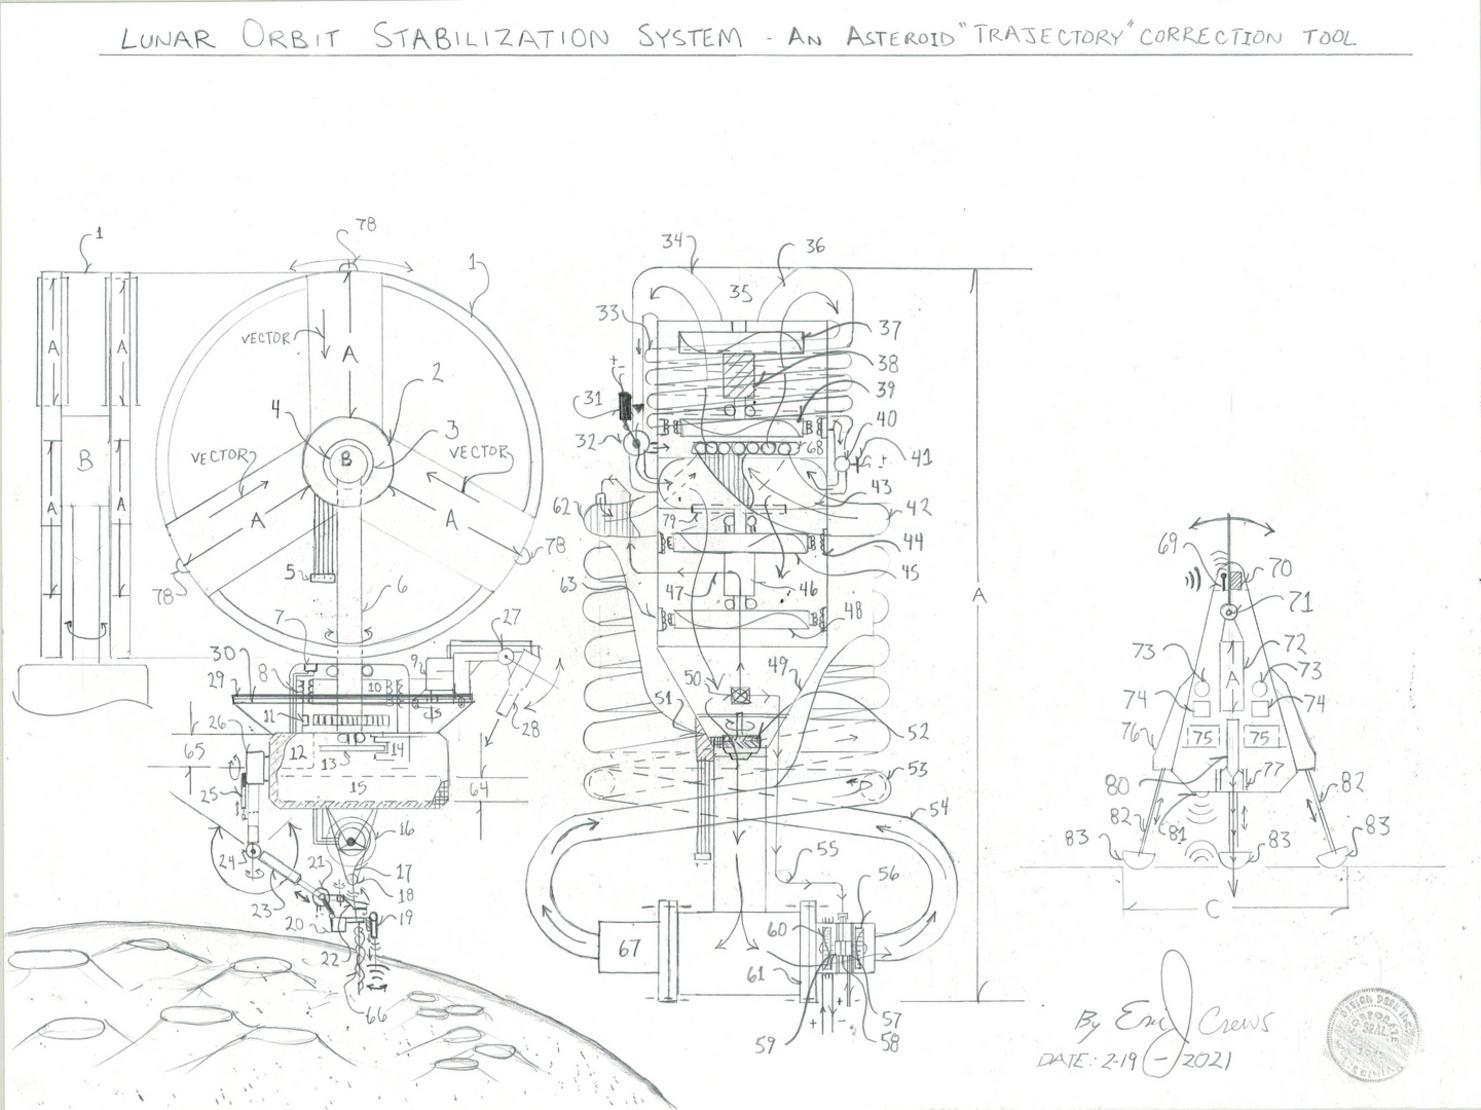 LUNAR ORBIT STABILIZATION SYSTEM - AN ASTEROID "TRAJECTORY" CORRECTION TOOL
78
1
1
34
36
35
33
37
VECTOR
A
A
A
2
38
39
31
4
3
40
32
68
41
B
B
VECTOR
VECTOR
A
A
43
62
42
79
44
A
A
69
70
5
78
45
78
6
47
46
63
A
71
48
7
27
72
73
73
30
9
8
10
49
50
A
29
28
51
52
74
74
11
26
76
75
75
65
12
13
14
53
77
25
15
64
80
82
54
82
81
16
83
83
83
24
21
17
55
56
18
23
C
20
19
60
67
22
61
66
57
59
58
By Eric J Crews
DATE: 2-19-2021
DESIGN DESK INC.
CORPORATE
SEAL
VIRGINIA